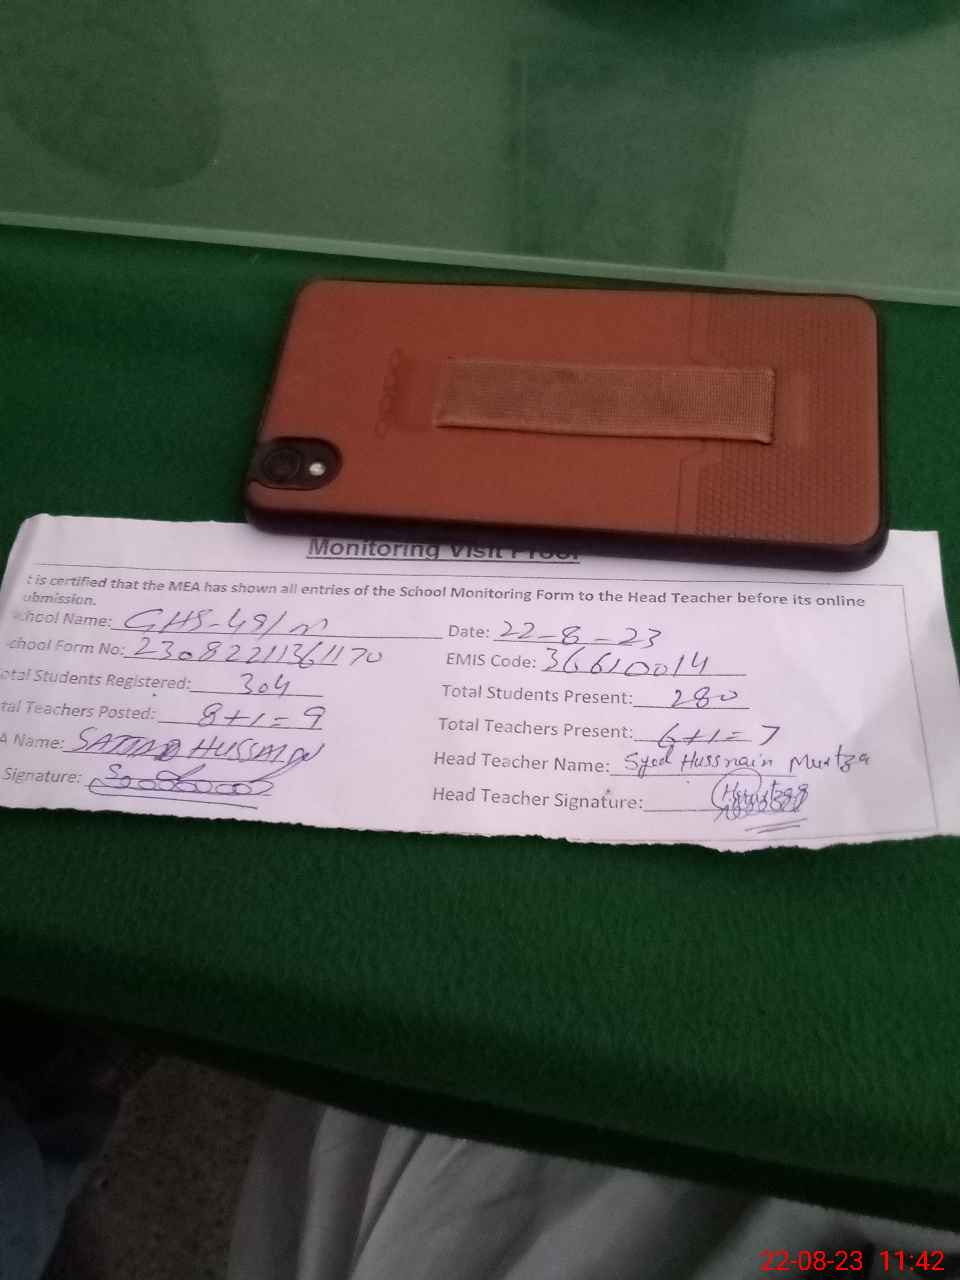 Monitoring Visit Proof
t is certified that the MEA has shown all entries of the School Monitoring Form to the Head Teacher before its online
ubmission.
chool Name: GHS-49/m Date: 22-8-23
chool Form No: 2308221136 1170 EMIS Code: 36610014
otal Students Registered: 304 Total Students Present: 280
tal Teachers Posted: 8+1=9 Total Teachers Present: 6+1=7
A Name: HUSSAIN Head Teacher Name: Syed Hussnain Murtza
Signature: Head Teacher Signature:
22-08-23 11:42